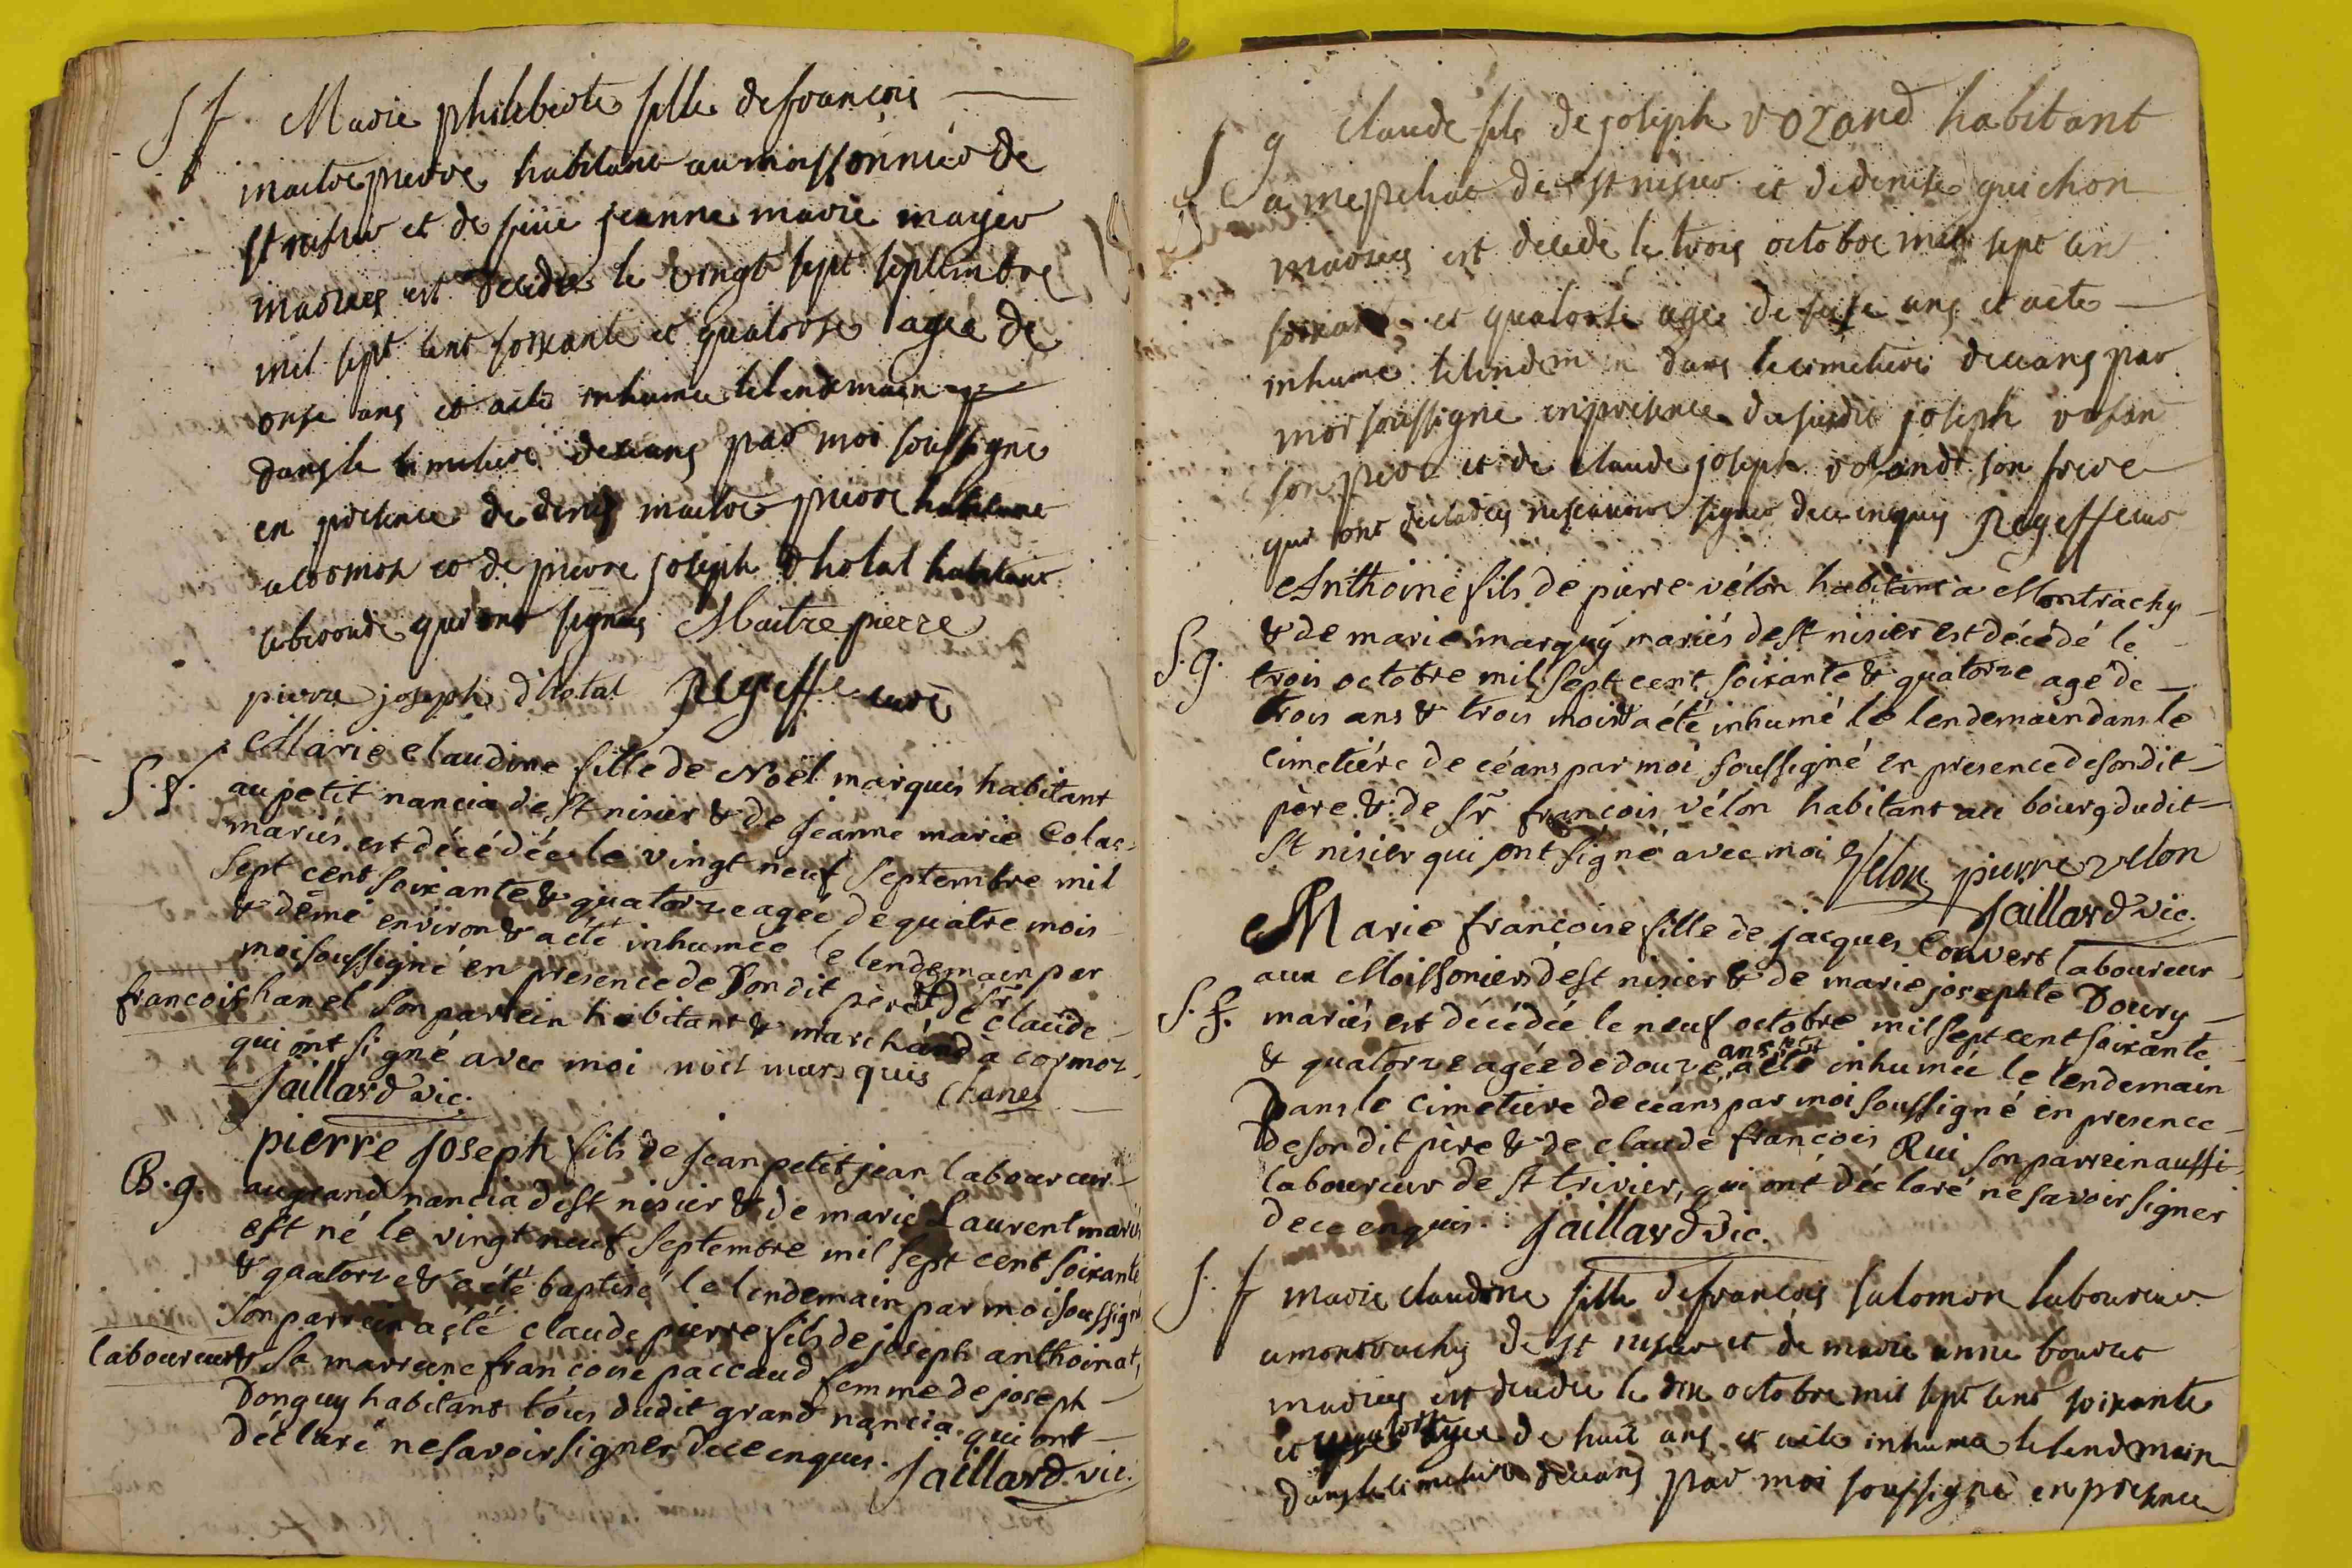 S f Marie philiberte fille de francois
maitrepierre habitant aux moissonnier de
st nisier et de feüe jeanne marie mayer
mariees est decedee le vingt sept septembre
mil sept cent soixante et quatorse agee de
onse ans et aete inhumee lelendemain
dans le cimetiere deceans par moi soussigné
en presence de denis maitre pierre habitant
acormoz et de pierre joseph dhotal habitant
qui ont signes Maitre pierre
pierre joseph d'hotal pegeffe curé
S. f. Marie claudine fille de Noël marquis habitant
au petit nancia de st nisier & de jeanne marie Colas
mariés est décédée le vingt neuf septembre mil
sept cent soixante & quatorze agée de quatre mois
& démé environ & aété inhumée le lendemain par
moi soussigné en presence de son dit père & de sr claude
francois chanel son parrein habitant & marchand à cormoz
qui ont signé avec moi noel marquis Chanel
Jaillard vic.
B. g. pierre joseph fils de jean petit jean laboureur
augrand nancia dest nisier & de marie Laurent mariés
est né le vingt neuf septembre mil sept cent soixante
& quatorze & aété baptisé le lendemain par moi soussigné
son parrein aété claude pierre fils de joseph anthoinat,
laboureur & sa marreine francoise paccaud femme de joseph
Donguy habitant tous dudit grand nancia qui ont
déclaré nesavoir signer dece enquis. Jaillard vic.
S g Claude fils de joseph vozand habitant
a mepiliat de st nisier et de denise guichon
mariees est decede le trois octobre mil sept cen
soixante et quatorse agé de seise ans et aete
inhumé lelendem dans lecimetiere deceans par
moi soussigné enpresence dususdit joseph vosan
son pere et de claude joseph vosandt son frere
qui ont declarees nescavoir signer dece enquis pegeffe curé
S. g. Anthoine fils de pierre vélon habitant a Montrachy
& de marie marquy mariés dest nisier est décédé le
trois octobre mil sept cent soixante & quatorze agé de
trois ans & trois mois & a été inhumé le lendemain dans le
cimetiére de céans par moi soussigné en presence desondit
père & de sr francois vélon habitant au bourg dudit
St nisier qui ont signé avec moi Velon pierre velon
Jaillard vic.
S. f. Marie francoise fille de jacques Convert laboureur
aux Moissoniers dest nisier & de marie josephte Doury
mariés est décédée le neuf octobre mil sept cent soixante
& quatorze agée de douze ans & aété inhumée le lendemain
Dans le cimetiere de céans par moi soussigné en presence
Desondit père & de claude francois Rui son parrein aussi
laboureur de st trivier, qui ont déclaré ne savoir signer
dece enquis. Jaillard vic.
S. f marie claudine fille de francois salomon laboureur
amontrachy de st nisier et de marie anne bourcet
mariees est decedee le dix octobre mil sept cent soixante
et quatorse agee de huit ans et aete inhumee lelendmain
dans lecimetiere deceans par moi soussigné en presence